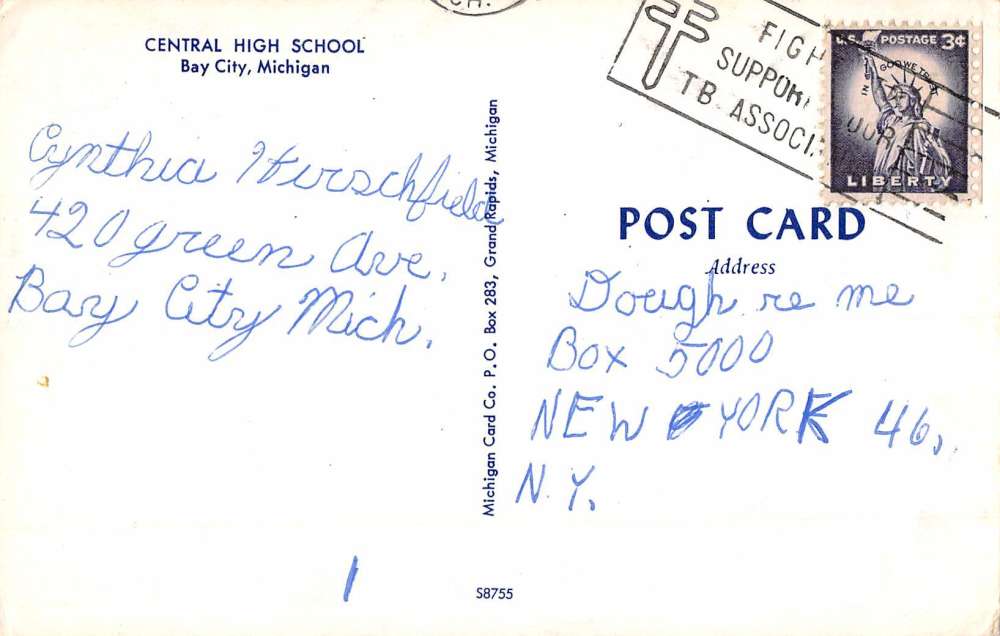 CH.
CENTRAL HIGH SCHOOL
Bay City, Michigan
Cynthia Hirschfield
420 green Ave.
Bay City Mich.
1
Michigan Card Co. P. O. Box 283, Grand Rapids, Michigan
S8755
FIGH
SUPPORT OUR
TB ASSOCI
U.S. POSTAGE 3¢
IN GOD WE TRUST
LIBERTY
POST CARD
Address
Dough re me
Box 5000
NEW YORK 46,
N.Y.